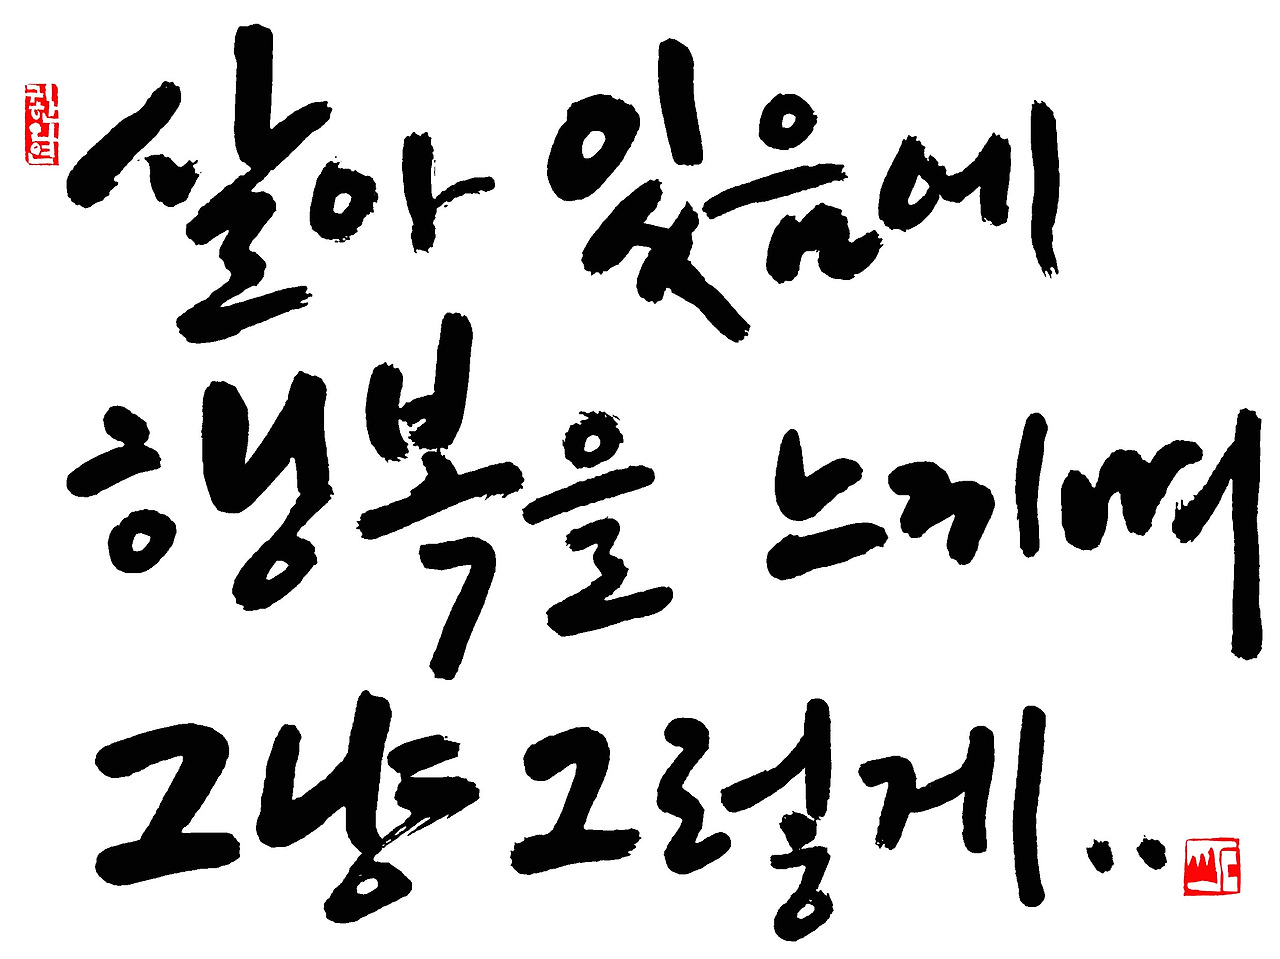 살아 있음에
행복을 느끼며
그냥 그렇게..